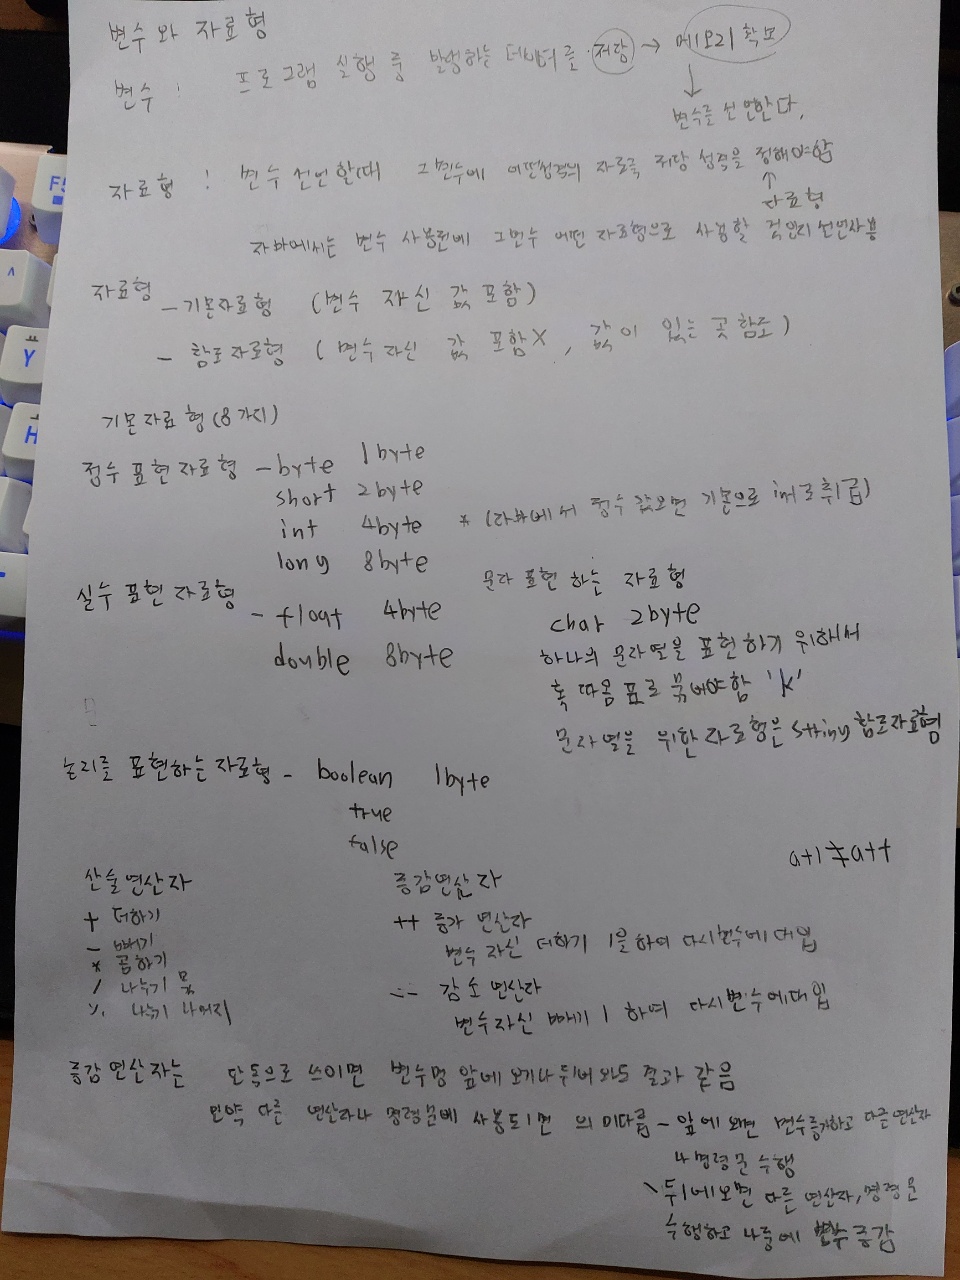 변수와 자료형
변수 : 프로그램 실행 중 발생하는 데이터를 저장 → 메모리 확보
변수를 선언한다.
자료형 : 변수 선언할때 그변수에 어떤성격의 자료를 저장 성격을 정해야함
자료형
자바에서는 변수 사용전에 그변수 어떤 자료형으로 사용할 것인지 선언사용
자료형 - 기본자료형 (변수 자신 값 포함)
- 참조자료형 (변수자신 값 포함X, 값이 있는 곳 참조)
기본자료형(8가지)
정수 표현 자료형 - byte 1byte
short 2byte
int 4byte * (자바에서 정수 값오면 기본으로 int로 취급)
long 8byte
실수 표현 자료형 - float 4byte
double 8byte
문자 표현 하는 자료형
char 2byte
하나의 문자열을 표현하기 위해서
홑 따옴표로 묶어야함 'k'
문자열을 위한 자료형은 string 참조자료형
논리를 표현하는 자료형 - boolean 1byte
true
false
a+1≠a++
산술연산자
+ 더하기
- 빼기
* 곱하기
/ 나누기 몫
% 나누기 나머지
증감연산자
++ 증가 연산자
변수 자신 더하기 1을 하여 다시변수에 대입
-- 감소 연산자
변수자신 빼기 1 하여 다시변수에대입
증감 연산자는 단독으로 쓰이면 변수명 앞에 오거나 뒤에 와도 결과 같음
만약 다른 연산자나 명령문에 사용되면 의미다름 - 앞에 오면 변수증가하고 다른연산자
나 명령문 수행
\ 뒤에오면 다른 연산자, 명령문
수행하고 나중에 변수 증감